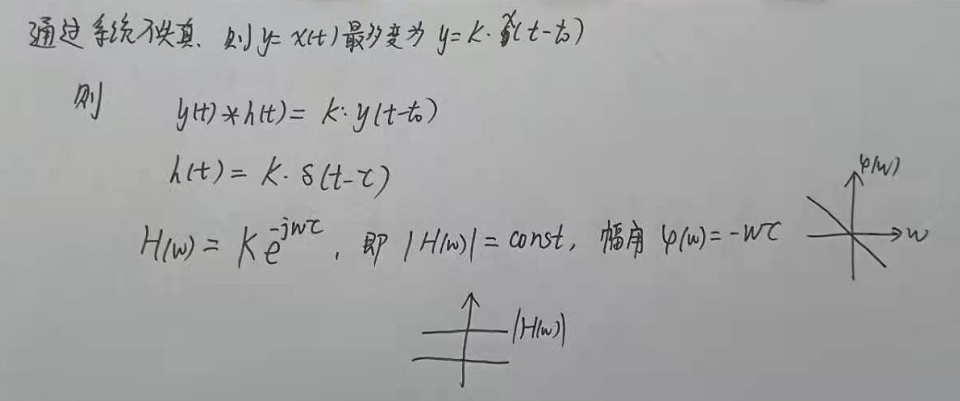 通过系统不失真. 则 y= x(t) 最多变为 y=k·x(t-t₀)
则
y(t)*h(t)= k·y(t-t₀)
h(t)= k·δ(t-τ)
φ(w)
H(w)= ke^{-jwτ}, 即 |H(w)|= const, 幅角 φ(w)=-wτ
w
|H(w)|